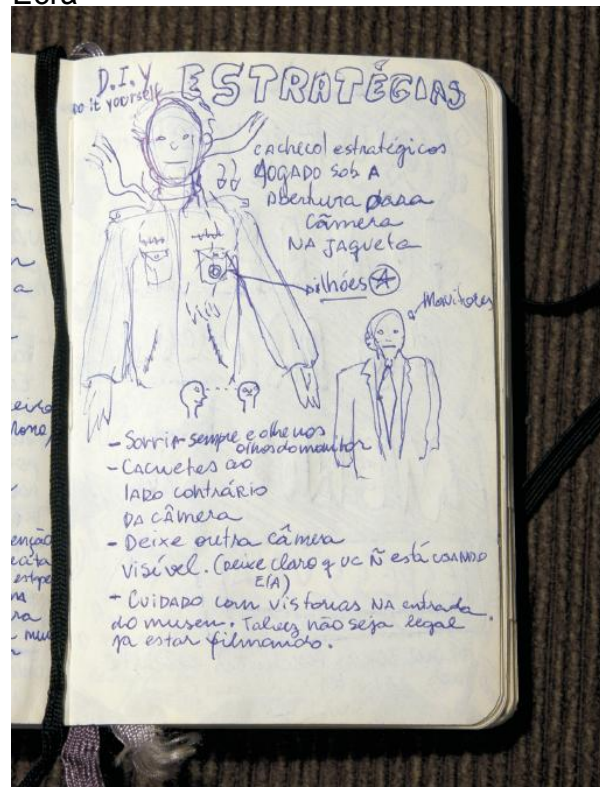 Ecrã
D.I.Y
do it yourself
ESTRATÉGIAS
cachecol estratégicos
JOGADO SOb A
Abertura para
Câmera
NA JAqueta
ilhóes
Monitores
- Sorrir sempre e olhe nos
olhos do monitor
- Cachetes ao
lado contrário
DA CÂmera
- Deixe outra câmera
visível. (Deixe claro q vc Ñ está usando
ElA)
- Cuidado com vistorias NA entrada
do museu. Talvez não seja legal
ja estar filmando.
enção